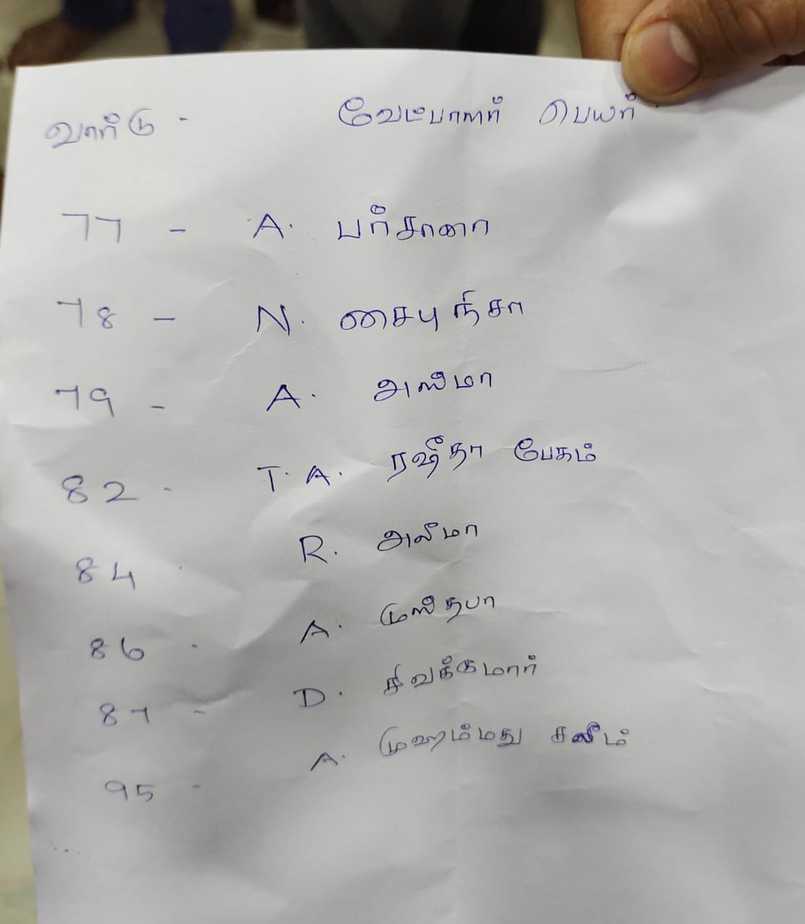 வார்டு - வேட்பாளர் பெயர்
77 - A. பர்சானா
78 - N. சைபுநிசா
79 - A. அலிமா
82 - T. A. ரஷீதா பேகம்
84 . R. அலிமா
86 - A. முஸீதபா
87 - D. சிவக்குமார்
95 - A. முஹம்மது சலீம்